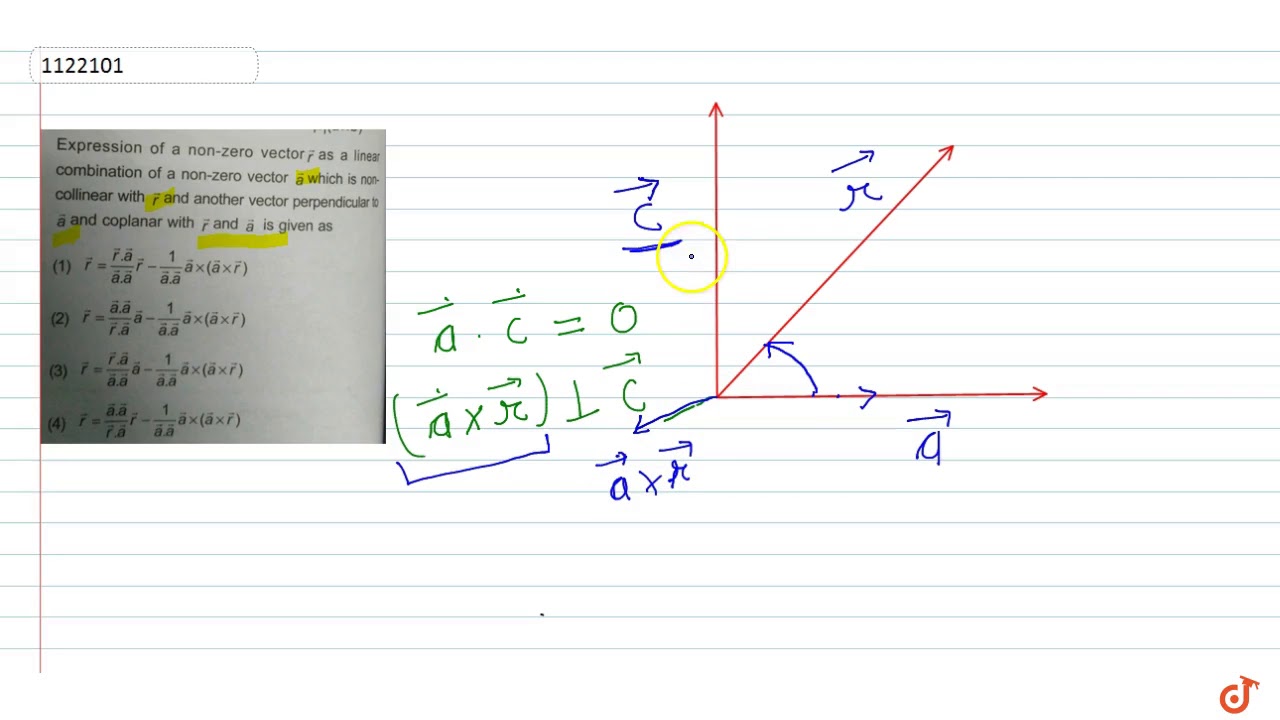 1122101
Expression of a non-zero vector r⃗ as a linear
combination of a non-zero vector a⃗ which is non-
collinear with r⃗ and another vector perpendicular to
a⃗ and coplanar with r⃗ and a⃗ is given as
(1) r⃗ = (r⃗.a⃗)/(a⃗.a⃗) r⃗ − 1/(a⃗.a⃗) a⃗×(a⃗×r⃗)
(2) r⃗ = (a⃗.a⃗)/(r⃗.a⃗) a⃗ − 1/(a⃗.a⃗) a⃗×(a⃗×r⃗)
(3) r⃗ = (r⃗.a⃗)/(a⃗.a⃗) a⃗ − 1/(a⃗.a⃗) a⃗×(a⃗×r⃗)
(4) r⃗ = (a⃗.a⃗)/(r⃗.a⃗) r⃗ − 1/(a⃗.a⃗) a⃗×(a⃗×r⃗)
r⃗
c⃗
a⃗ . c⃗ = 0
(a⃗ × r⃗) ⊥ c⃗
a⃗
a⃗ × r⃗